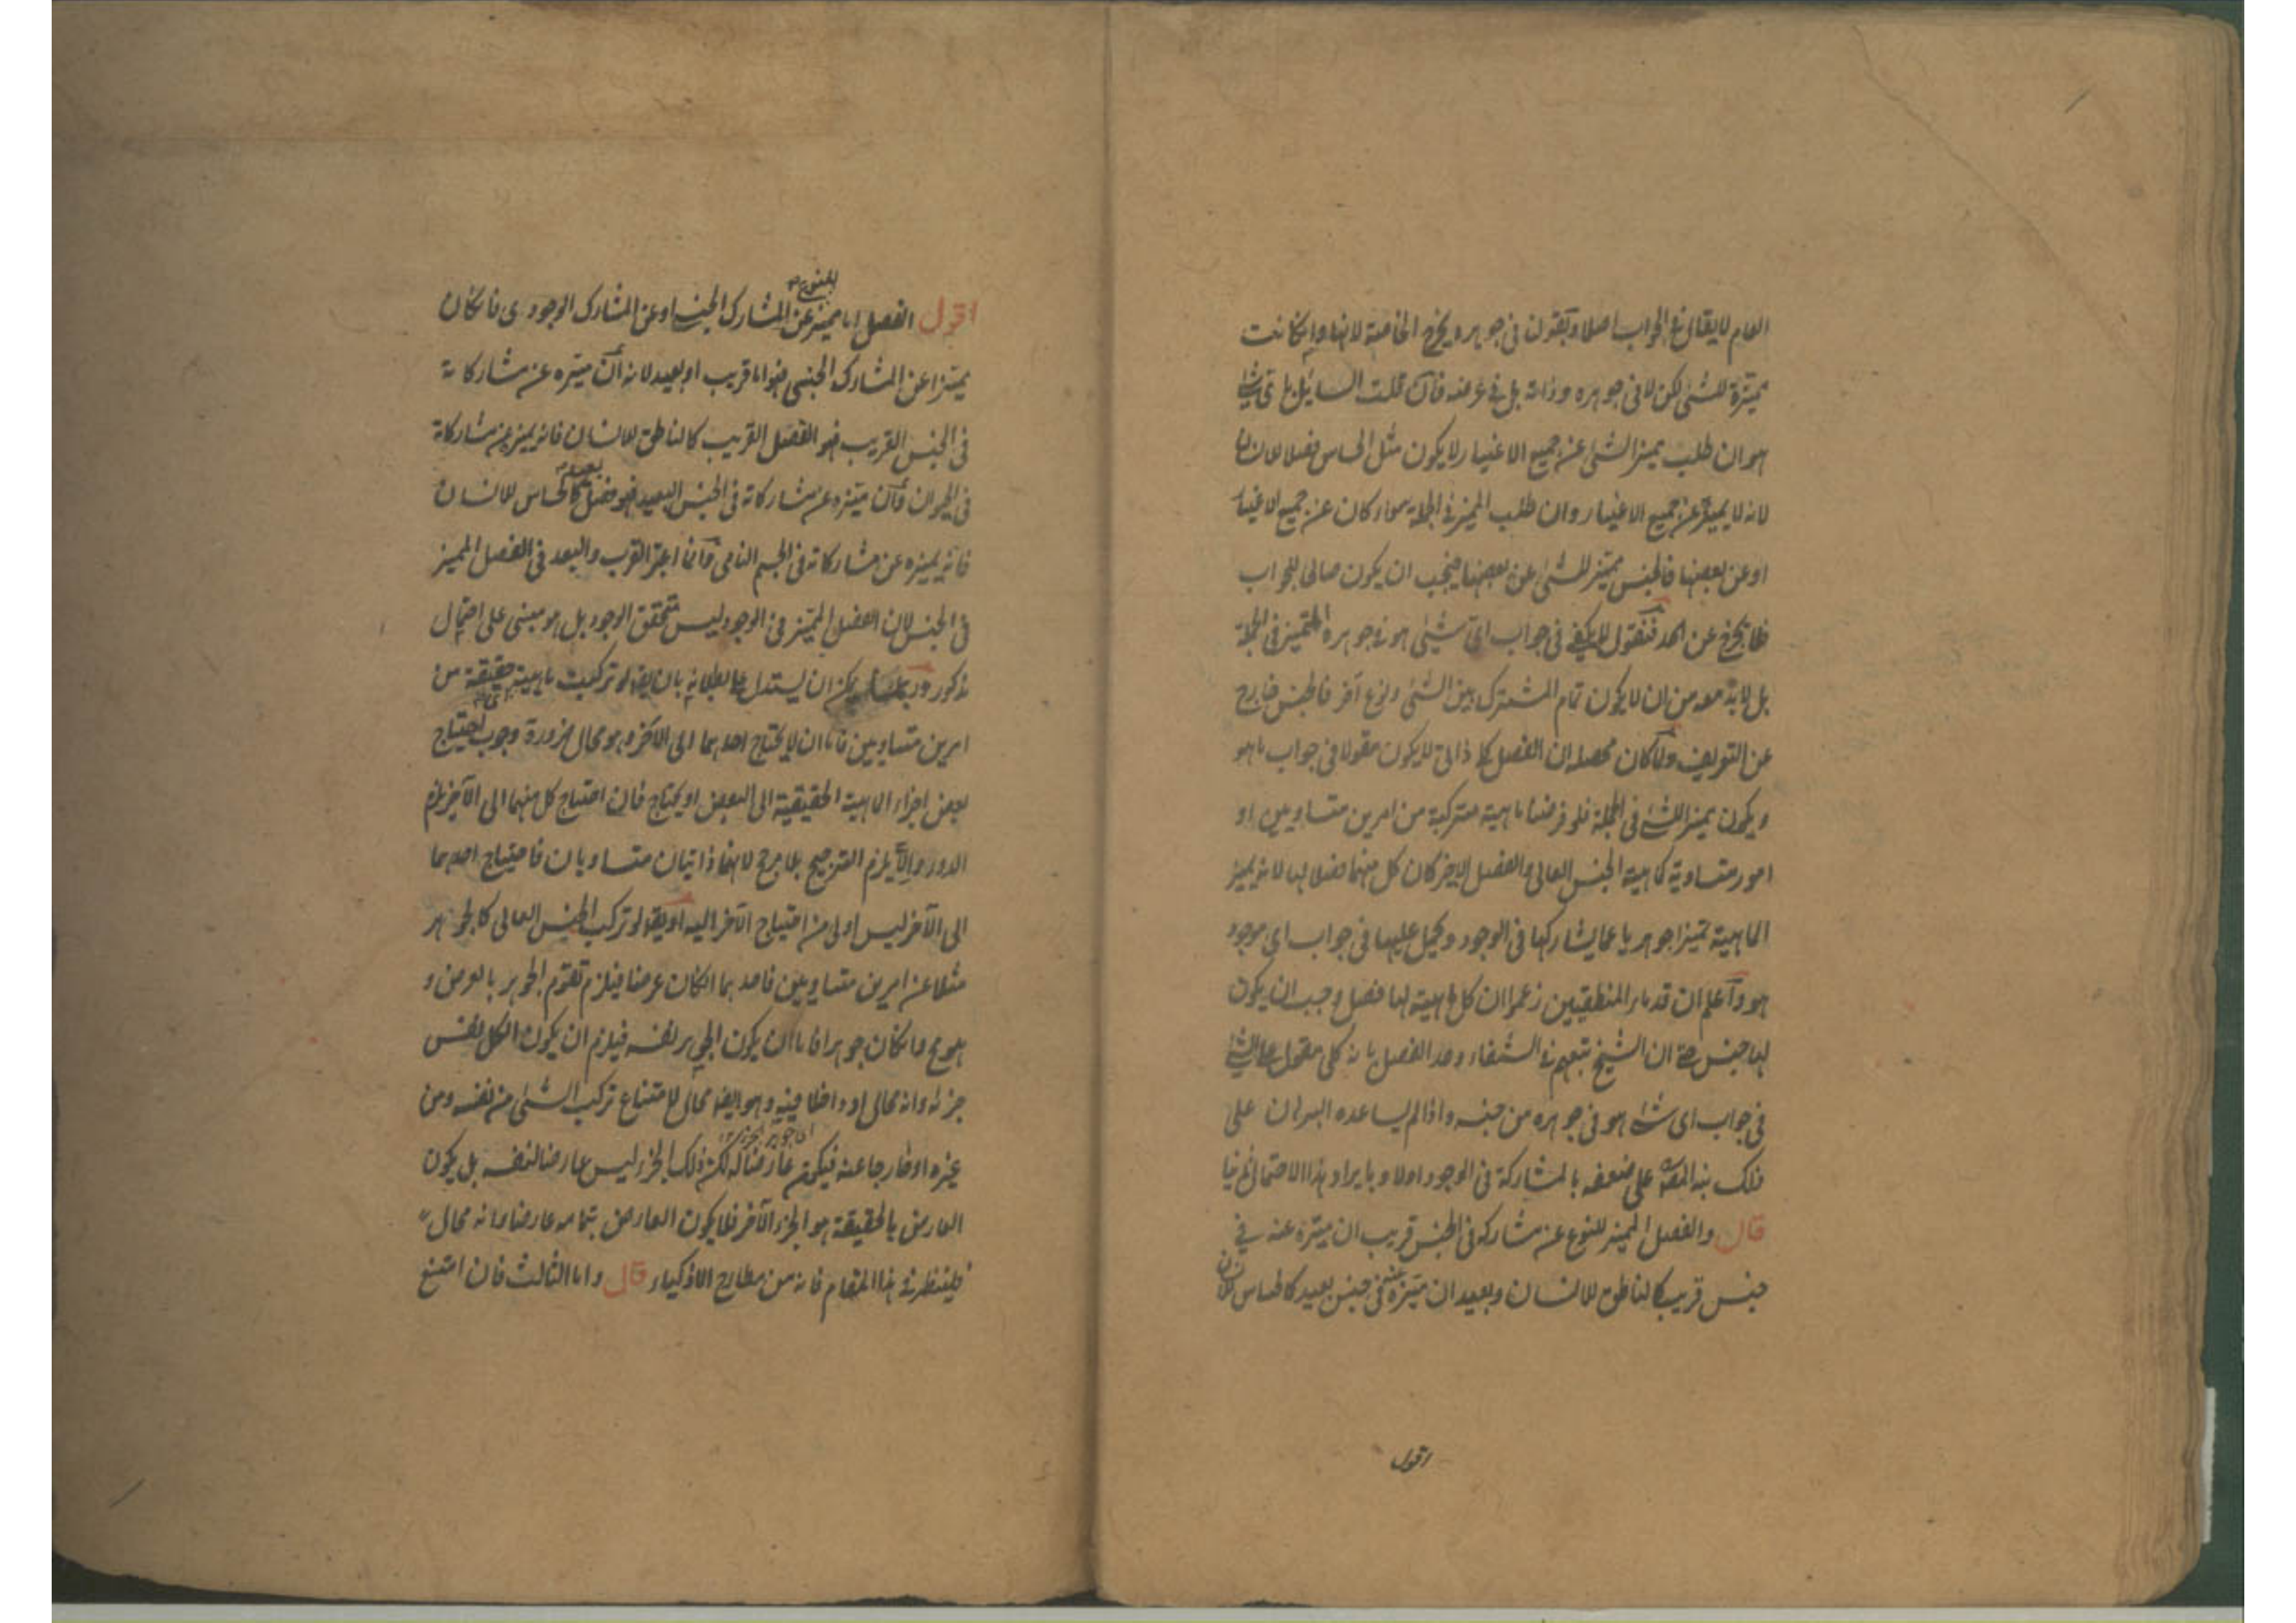 العام لا يقال في الجواب اصلا وبقولنا في جوهره يخرج الخاصة لانها وان كانت
مميزة للشئ لكن لا في جوهره وذاته بل في عرضه فان قلت السايل باي شئ
هو ان طلب مميز الشئ عن جميع الاغيار لا يكون مثل الحساس فصلا للانسان
لانه لا يميزه عن جميع الاغيار وان طلب المميز في الجملة سواء كان عن جميع الاغيار
او عن بعضها فالجنس مميز للشئ عن بعضها فيجب ان يكون صالحا للجواب
فلا يخرج عن الحد فنقول لا يكفي في جواب اي شئ هو في جوهره التمييز في الجملة
بل لا بد معه من ان لا يكون تمام المشترك بين الشئ ونوع آخر فالجنس خارج
عن التعريف ولما كان محصله ان الفصل كلي ذاتي لا يكون مقولا في جواب ما هو
ويكون مميزا للشئ في الجملة فلو فرضنا ماهية متركبة من امرين متساويين او
امور متساوية كماهية الجنس العالي والفصل الاخير كان كل منهما فصلا لها لانه يميز
الماهية تمييزا جوهريا عما يشاركها في الوجود ويحمل عليها في جواب اي موجود
هو واعلم ان قدماء المنطقيين زعموا ان كل ماهية لها فصل وجب ان يكون
لها جنس حتى ان الشيخ تبعهم في الشفاء وحد الفصل بانه كلي مقول على الشئ
في جواب اي شئ هو في جوهره من جنسه واذا لم يساعده البرهان على
ذلك نبه المصه على ضعفه بالمشاركة في الوجود اولا وبايراد هذا الاحتمال ثانيا
قال والفصل المميز للنوع عن مشاركه في الجنس قريب ان ميزه عنه في
جنس قريب كالناطق للانسان وبعيد ان ميزه عنه في جنس بعيد كالحساس للانسان
اقول
اقول الفصل اما مميز عن المشارك الجنسي او عن المشارك الوجودي فان كان
مميزا عن المشارك الجنسي فهو اما قريب او بعيد لانه ان ميزه عن مشاركاته
في الجنس القريب فهو الفصل القريب كالناطق للانسان فانه يميزه عن مشاركاته
في الحيوان وان ميزه عن مشاركاته في الجنس البعيد فهو فصل بعيد كالحساس للانسان
فانه يميزه عن مشاركاته في الجسم النامي وانما اعتبر القرب والبعد في الفصل المميز
في الجنس لان الفصل المميز في الوجود ليس متحقق الوجود بل هو مبني على احتمال
مذكور وربما يمكن ان يستدل على بطلانه بان يقه لو تركبت ماهية حقيقية من
امرين متساويين فاما ان لا يحتاج احدهما الى الآخر وهو محال ضرورة وجوب احتياج
بعض اجزاء الماهية الحقيقية الى البعض او يحتاج فان احتاج كل منهما الى الآخر يلزم
الدور والا يلزم الترجيح بلا مرجح لانهما ذاتيان متساويان فاحتياج احدهما
الى الآخر ليس اولى من احتياج الآخر اليه او يقه لو تركب الجنس العالي كالجوهر
مثلا عن امرين متساويين فاحدهما ان كان عرضا فيلزم تقوم الجوهر بالعرض و
هو مح وان كان جوهرا فاما ان يكون الجوهر نفسه فيلزم ان يكون الكل نفس
جزئه وانه محال او داخلا فيه وهو ايضه محال لامتناع تركب الشئ من نفسه ومن
غيره او خارجا عنه فيكون عارضا له لكن ذلك الجزء ليس عارضا لنفسه بل يكون
العارض بالحقيقة هو الجزء الآخر فلا يكون العارض بتمامه عارضا وانه محال
فلينظر في هذا المقام فانه من مطارح الاذكياء قال واما الثالث فان امتنع